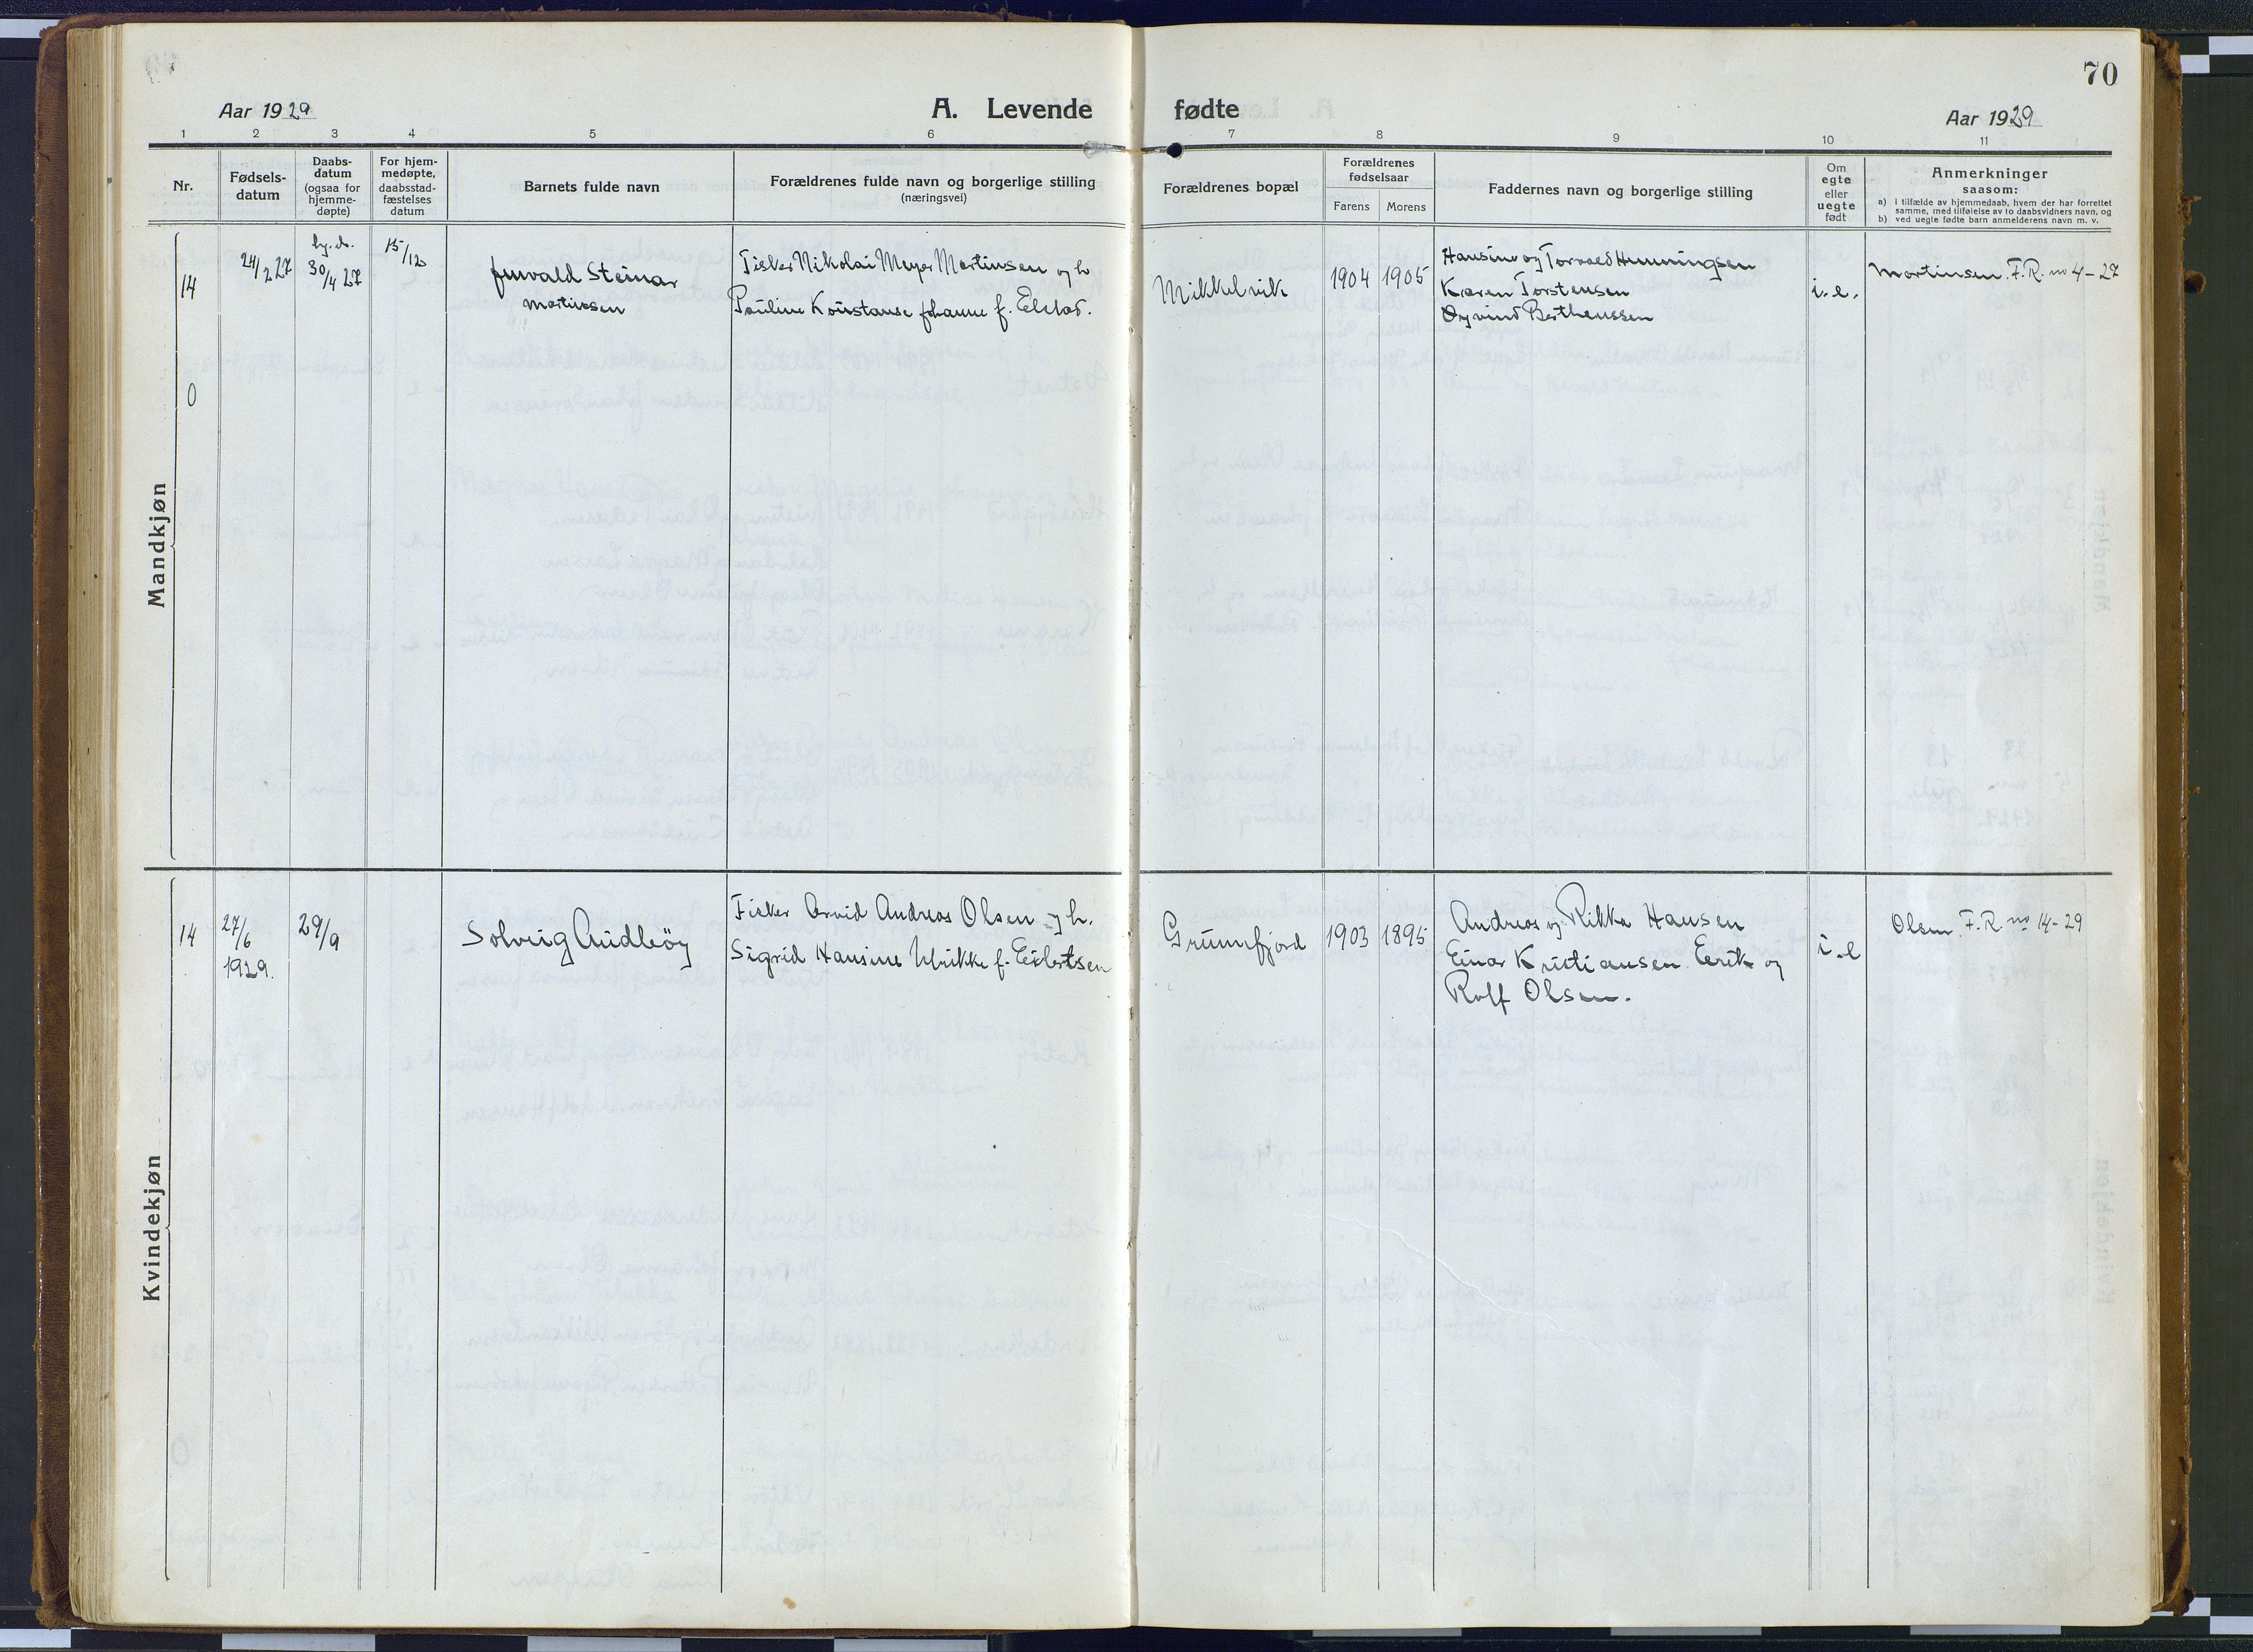 70
Aar 1929
A. Levende fødte
Aar 1929
1 2 3 4 5 6 7 8 9 10 11
Nr.
Fødsels-
datum
Daabs-
datum
(ogsaa for
hjemme-
døpte)
For hjem-
medøpte,
daabsstad-
fæstelses
datum
Barnets fulde navn
Forældrenes fulde navn og borgerlige stilling
(næringsvei)
Forældrenes bopæl
Forældrenes
fødselsaar
Farens Morens
Faddernes navn og borgerlige stilling
Om
egte
eller
uegte
født
Anmerkninger
saasom:
a) i tilfælde av hjemmedaab, hvem der har forrettet
samme, med tilføielse av to daabsvidners navn, og
b) ved uegte fødte barn anmelderens navn m. v.
Mandkjøn
14
24/2 27
hj.d.
30/4 27
15/12
Steinar
Martinsen
Fisker Nikolai Meyer Martinsen og h
Pauline Konstanse Johanne f.
Mikkelvik
1904 1905
Hansine og Torvald Henningsen
Karen Torstensen
Øyvind Bertheussen
i.e.
Martinsen. F.R. no 4-27
0
Kvindekjøn
14
27/6
1929.
29/9
Solveig Audbøy
Fisker Arvid Andreas Olsen og h.
Sigrid Hansine Ulrikke f. Eilertsen
Grunnfjord
1903 1895
Andreas og Rikka Hansen
Einar Kristiansen. Eerik og
Rolf Olsen.
i.e
Olsen. F.R. no 14-29